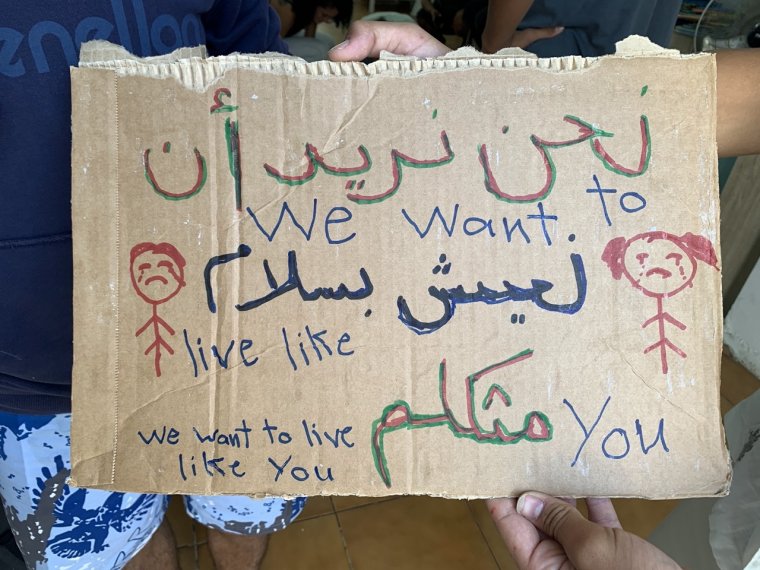 enellon
نحن نريد أن
We want to
نعيش بسلام
live like
مثكلم
You
we want to live
like You